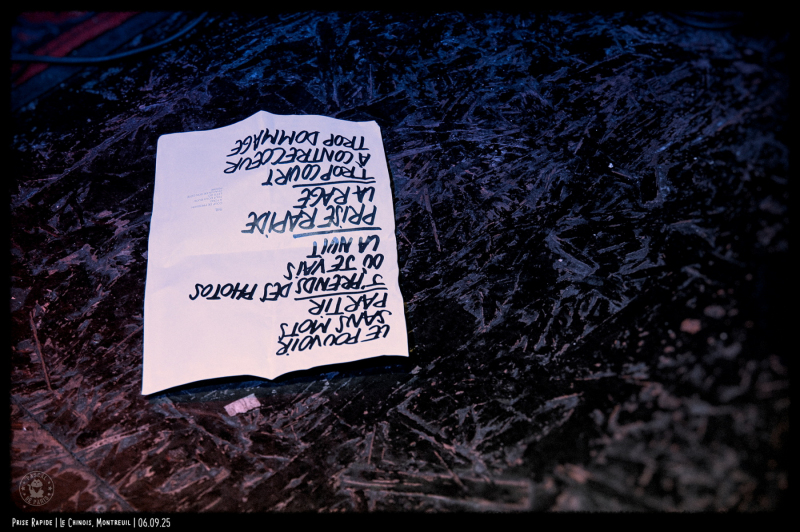 LE POUVOIR
SANS MOTS
PARTIR
J'PRENDS DES PHOTOS
OÙ JE VAIS
LA NUIT
PRISE RAPIDE
LA RAGE
TROP COURT
À CONTRECŒUR
TROP DOMMAGE
Prise Rapide | Le Chinois, Montreuil | 06.09.25